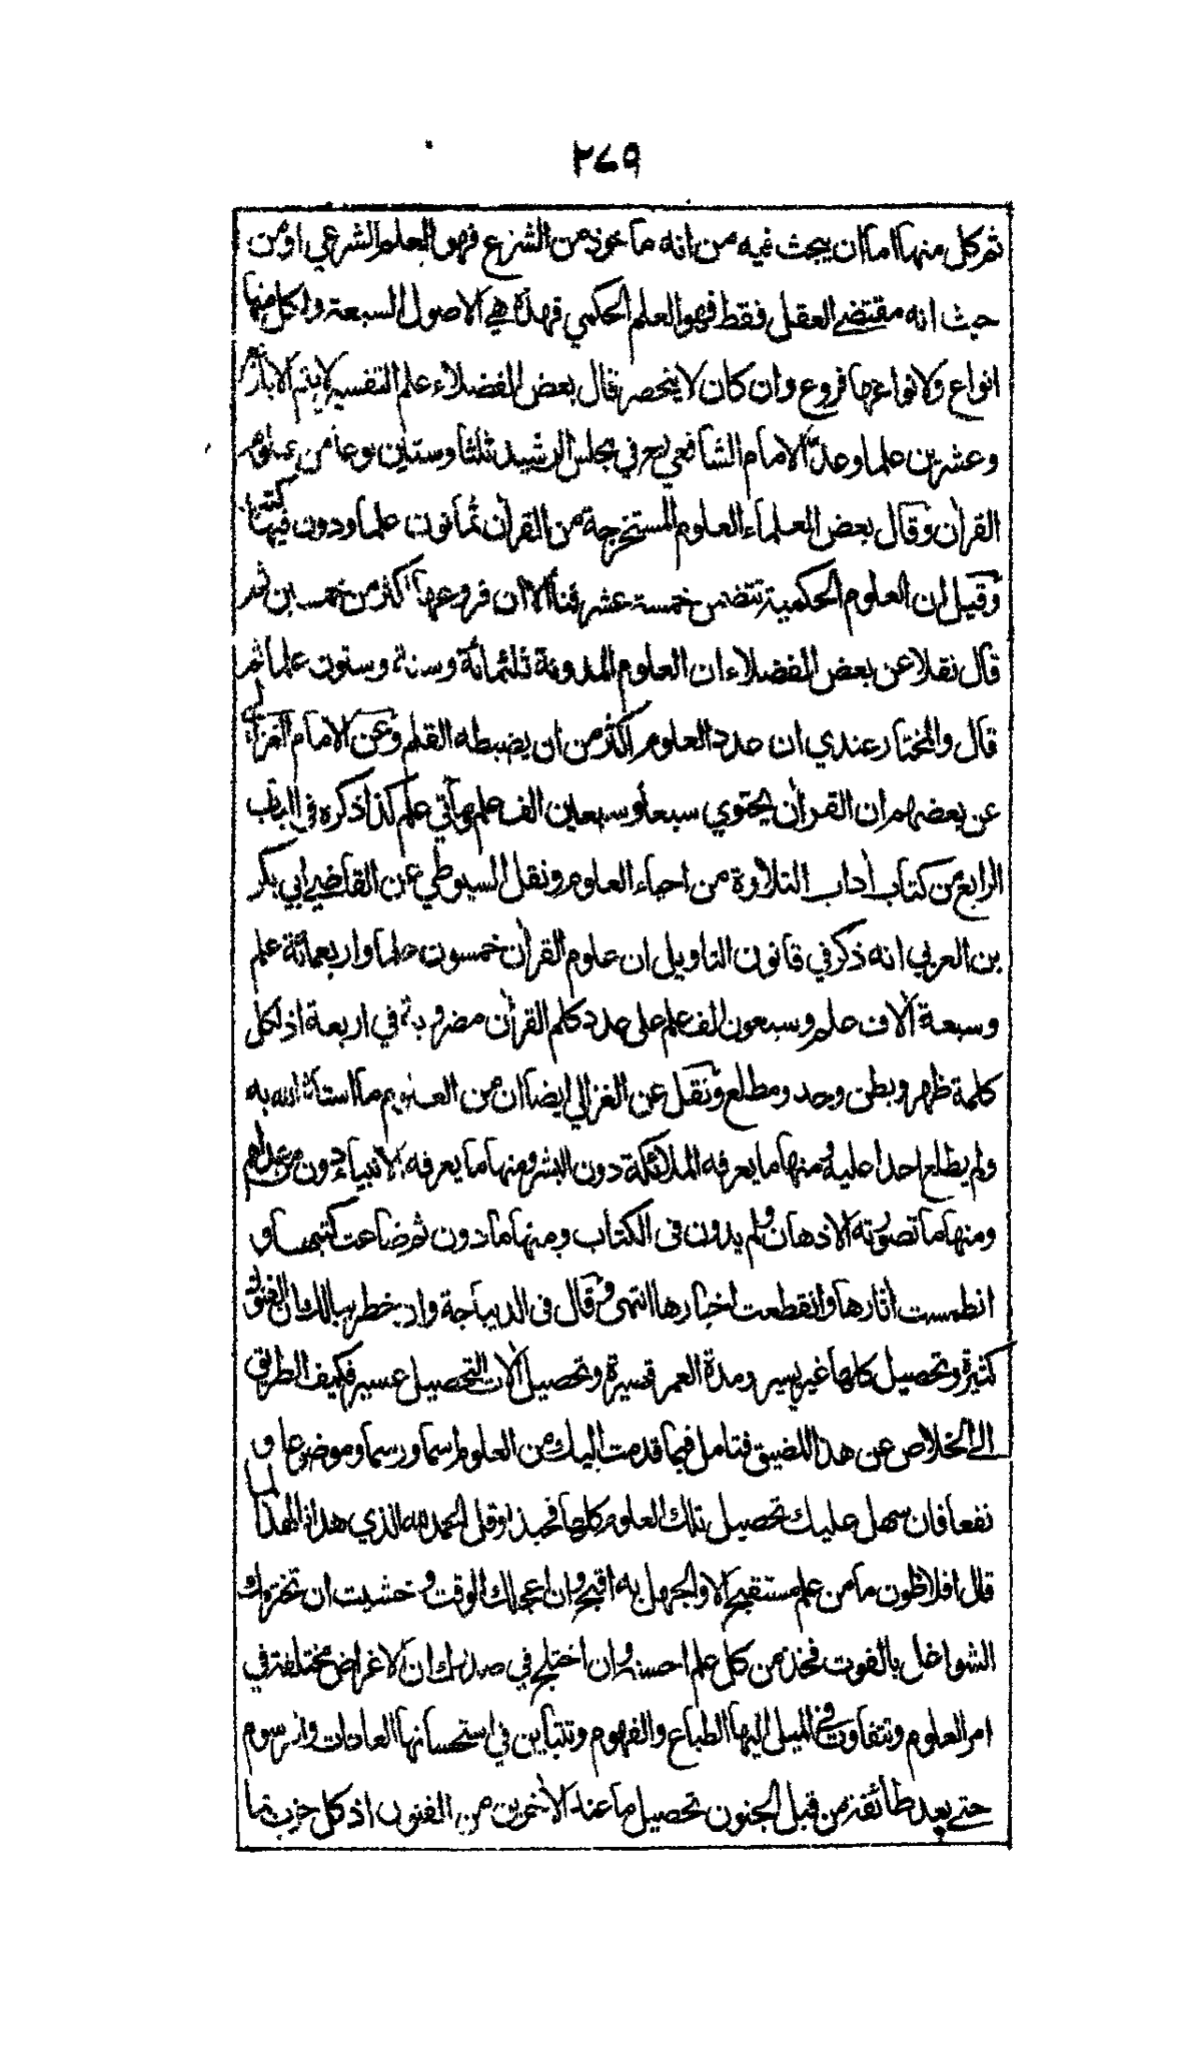 ٢٦٩
ثم كل منها اما ان يبحث فيه من انه ماخوذ من الشرع فهو العلم الشرعي او من
حيث انه مقتضى العقل فقط فهو العلم الحكمي فهذه هي الاصول السبعة ولكل منها
انواع ولانواعها فروع وان كان لا ينحصر قال بعض الفضلاء علم التفسير لا يتم الا باربعة
وعشرين علما وعد الامام الشافعي رح في مجلس الرشيد ثلثا وستين نوعا من علوم
القرآن وقال بعض العلماء العلوم المستخرجة من القرآن ثمانون علما ودون فيها كتبا
وقيل ان العلوم الحكمية تتضمن خمسة عشر فنا الا ان فروعها اكثر من خمسين ثم
قال نقلا عن بعض الفضلاء ان العلوم المدونة ثلثمائة وستة وستون علما ثم
قال والمختار عندي ان عدد العلوم اكثر من ان يضبطه القلم وعن الامام الغزالي
عن بعضهم ان القرآن يحتوي سبعا وسبعين الف علم ومأتي علم كذا ذكره في الباب
الرابع من كتاب آداب التلاوة من احياء العلوم ونقل السيوطي عن القاضي ابي بكر
بن العربي انه ذكر في قانون التاويل ان علوم القرآن خمسون علما واربعمائة علم
وسبعة آلاف علم وسبعون الف علم على عدد كلم القرآن مضروبة في اربعة اذ لكل
كلمة ظهر وبطن وحد ومطلع ونقل عن الغزالي ايضا ان من العلوم ما استاثر الله به
ولم يطلع احدا عليه ومنها ما يعرفه الملائكة دون البشر ومنها ما يعرفه الانبياء دون من عداهم
ومنها ما تصورته الاذهان ولم يدون في الكتاب ومنها ما دون ثم ضاعت كتبها و
انطمست آثارها وانقطعت اخبارها انتهى وقال في الديباجة واد خطر ببالك ان الفنون
كثيرة وتحصيل كلها غير يسير ومدة العمر قصيرة وتحصيل آلات التحصيل عسير فكيف الطريق
الى الخلاص عن هذا المضيق فتامل فيما قدمت اليك من العلوم اسما ورسما وموضوعا و
نفعا فان سهل عليك تحصيل تلك العلوم كلها فحبذا وقل الحمد لله الذي هدانا لهذا لما
قال افلاطون ما من علم مستقبح الا والجهل به اقبح وان اعجلك الوقت وخشيت ان تخترمك
الشواغل بالفوت فخذ من كل علم احسنه وان اختلج في صدرك ان الاغراض مختلفة في
امر العلوم وتتفاوت في الميل اليها الطباع والفهوم وتتباين في استحسانها العادات والرسوم
حتى يعد طائفة من قبل الجنون تحصيل ما عند الآخرين من الفنون اذ كل حزب بما